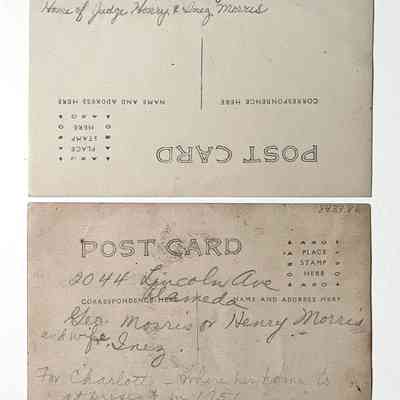 Home of Judge Henry & Inez Morris
CORRESPONDENCE HERE
NAME AND ADDRESS HERE
POST CARD
PLACE
STAMP
HERE
8935.86
POST CARD
PLACE
STAMP
HERE
2044 Lincoln Ave
CORRESPONDENCE HERE
NAME AND ADDRESS HERE
Alameda
Geo. Morris or Henry Morris
and wife, Inez.
For Charlott - where her home is
at present in 1951